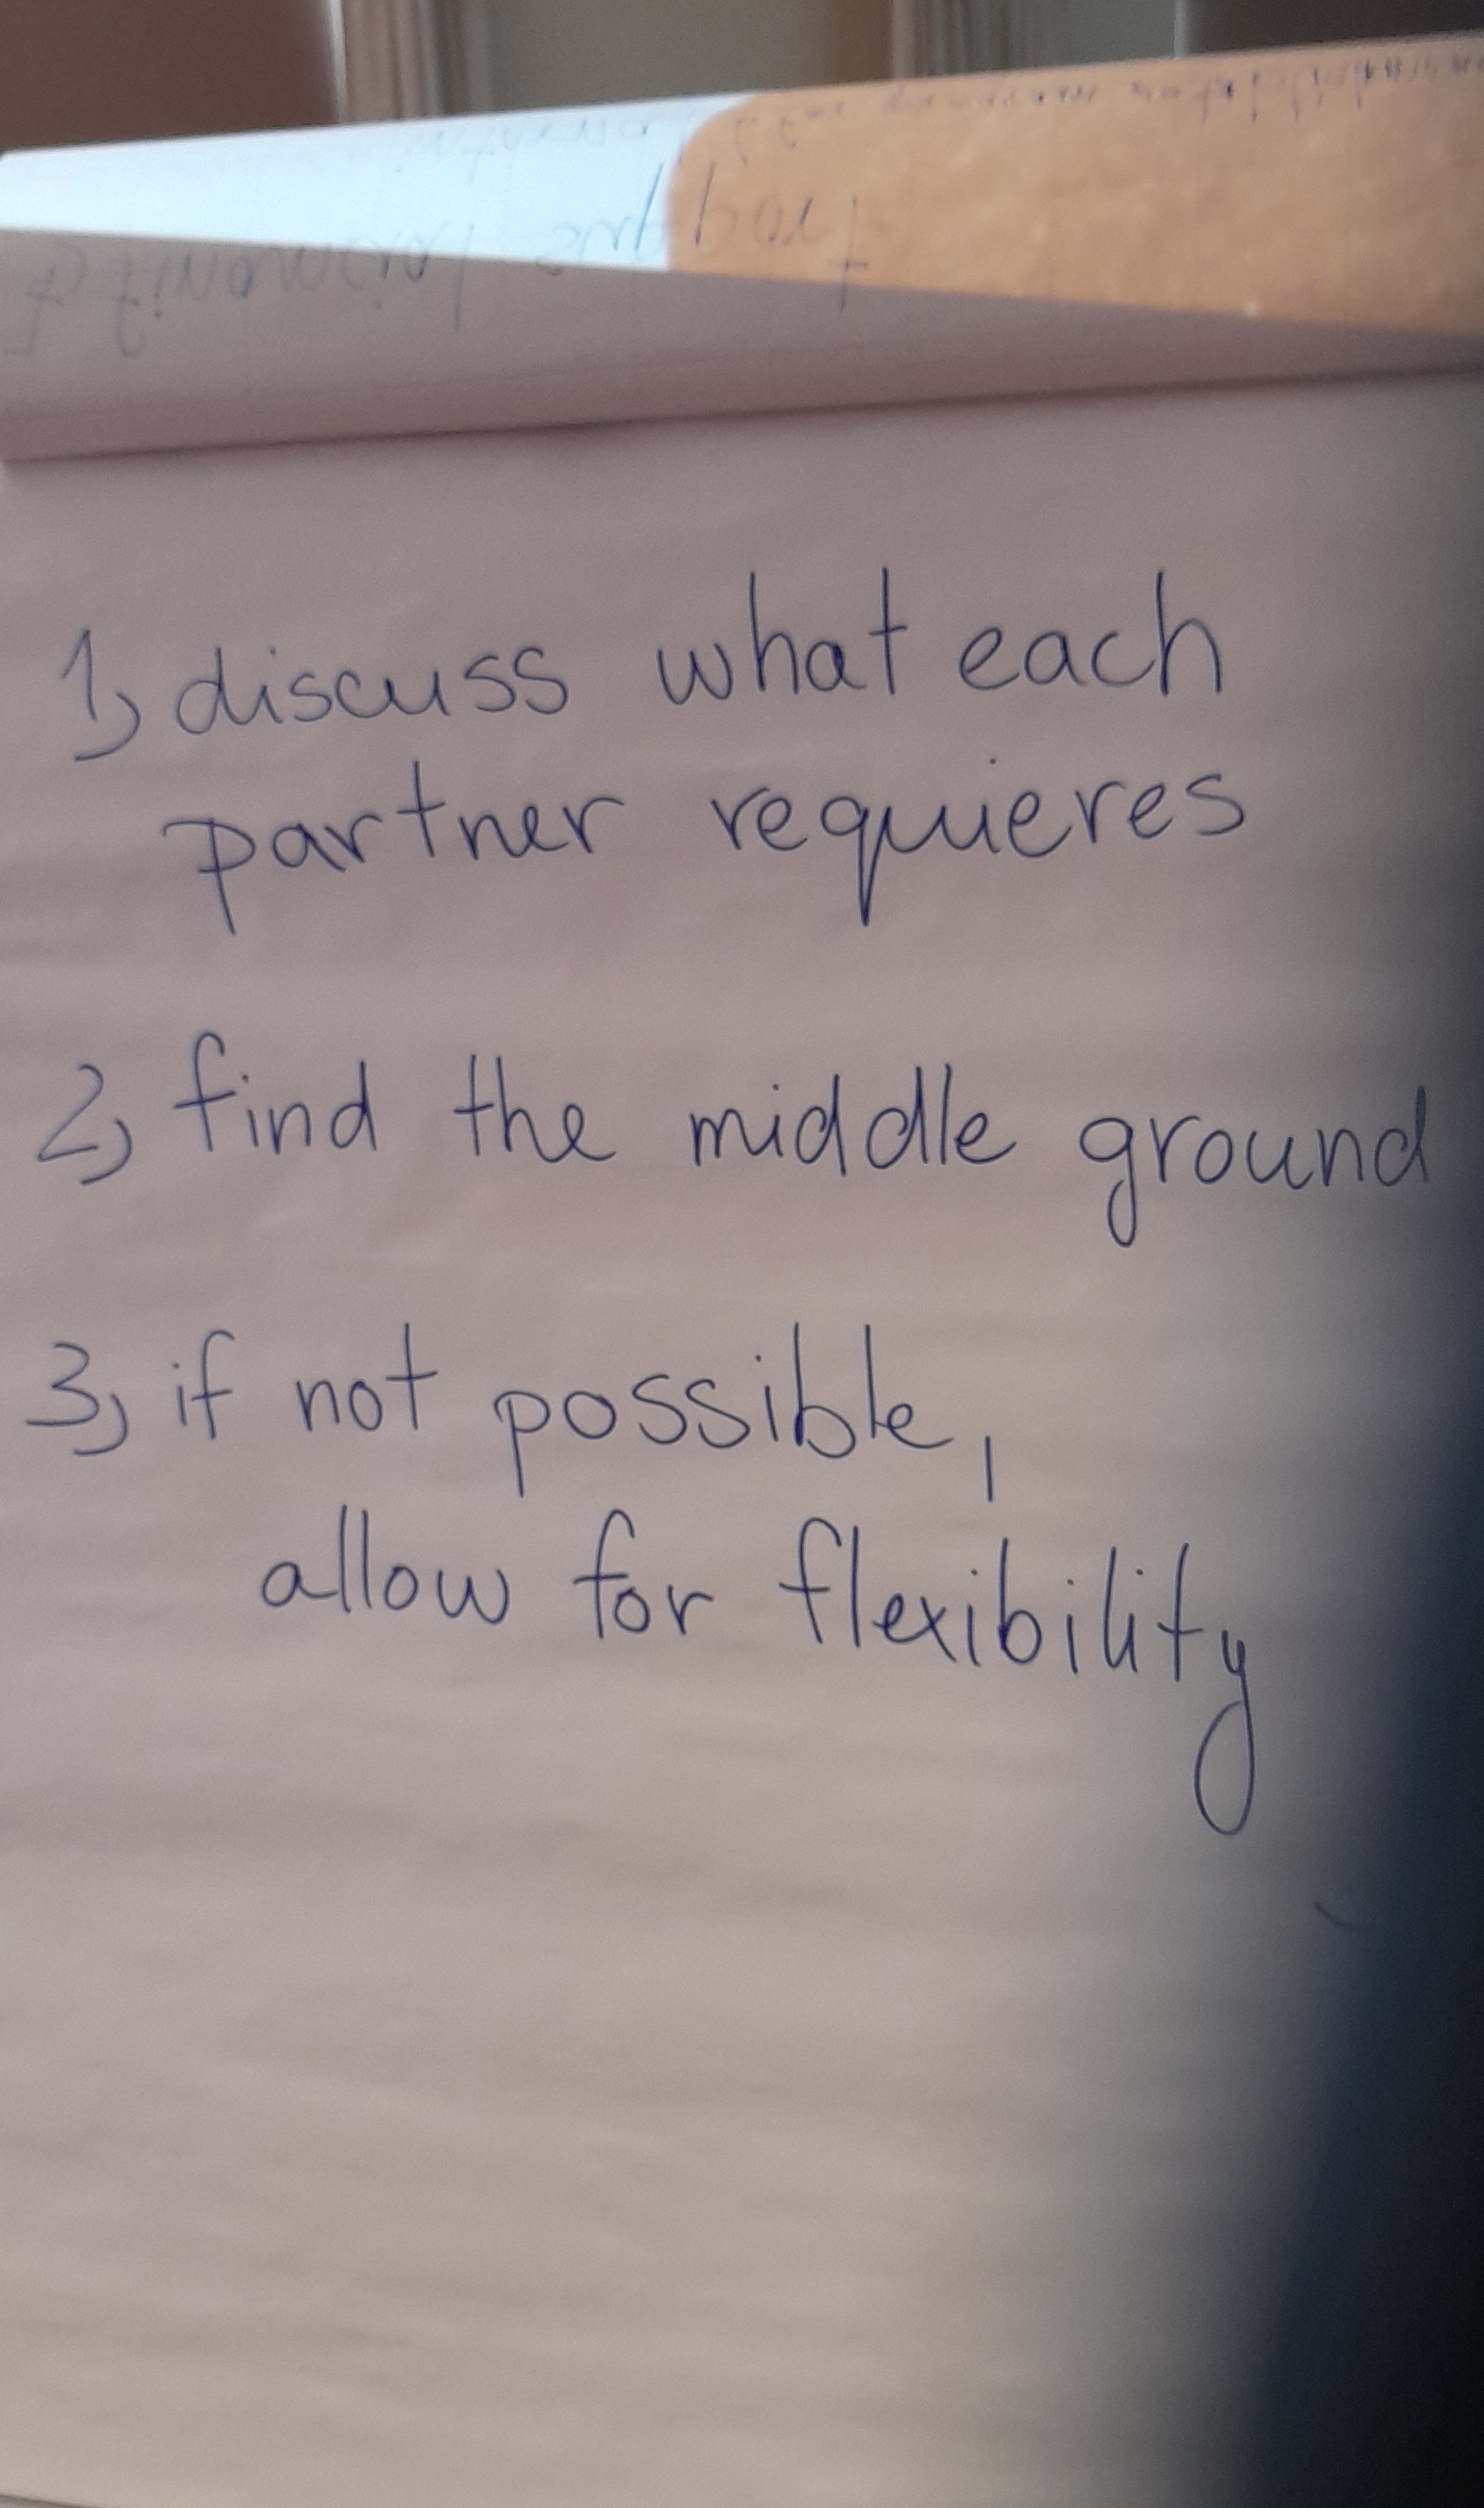 1, discuss what each
partner requieres
2, find the middle ground
3, if not possible,
allow for flexibility